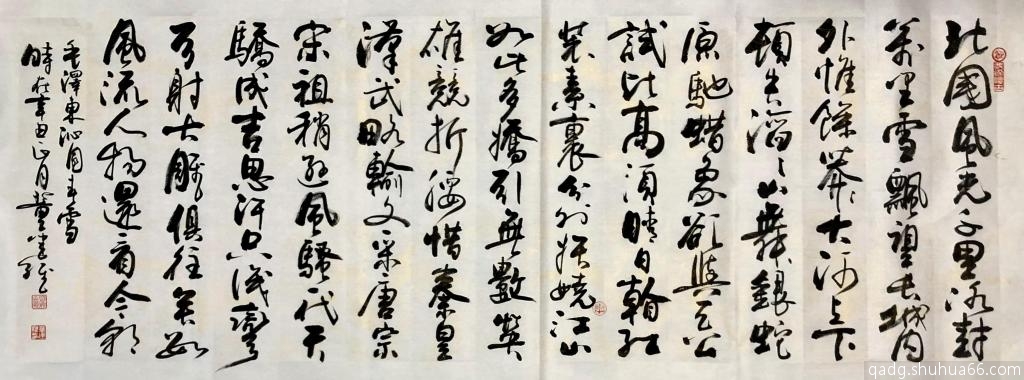 北國風光千里冰封
萬里雪飄望長城內
外惟餘莽莽大河上下
頓失滔滔山舞銀蛇
原馳蜡象欲與天公
試比高須晴日看紅
裝素裹分外妖嬈江山
如此多嬌引無數英
雄競折腰惜秦皇
漢武略輸文采唐宗
宋祖稍遜風騷一代天
驕成吉思汗只識彎
弓射大雕俱往矣數
風流人物還看今朝
毛澤東沁園春雪
時在辛丑正月董
qadg.shuhua66.com